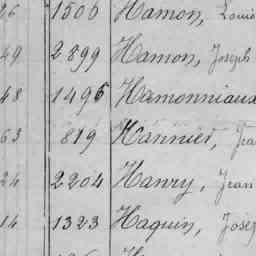 26 1506 Hamon, Louis
49 2899 Hamon, Joseph
48 1496 Hamonniaux
63 819 Hannier,
24 2204 Hanry, Jean
14 1323 Haquin,